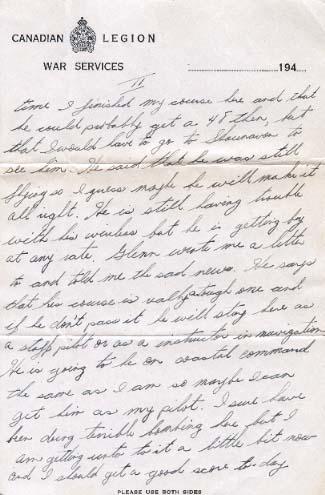 CANADIAN LEGION
WAR SERVICES
194
II
time I finished my course here and that
he could probably get a 48 then, but
that I would have to go to to
see him. He said that he was still
flying so I guess maybe he will make it
all right. He is still having trouble
with his wireless but he is getting by
at any rate. Glenn wrote me a letter
to and told me the sad news. He says
that his course is really tough one and
if he don't pass it he will stay here as
a staff pilot or as a instructor in navigation
He is going to be on coastal command
the same as I am so maybe I can
get him as my pilot. I sure have
been doing terrible bombing here but I
am getting unto to it a little bit now
and I should get a good score to day
PLEASE USE BOTH SIDES